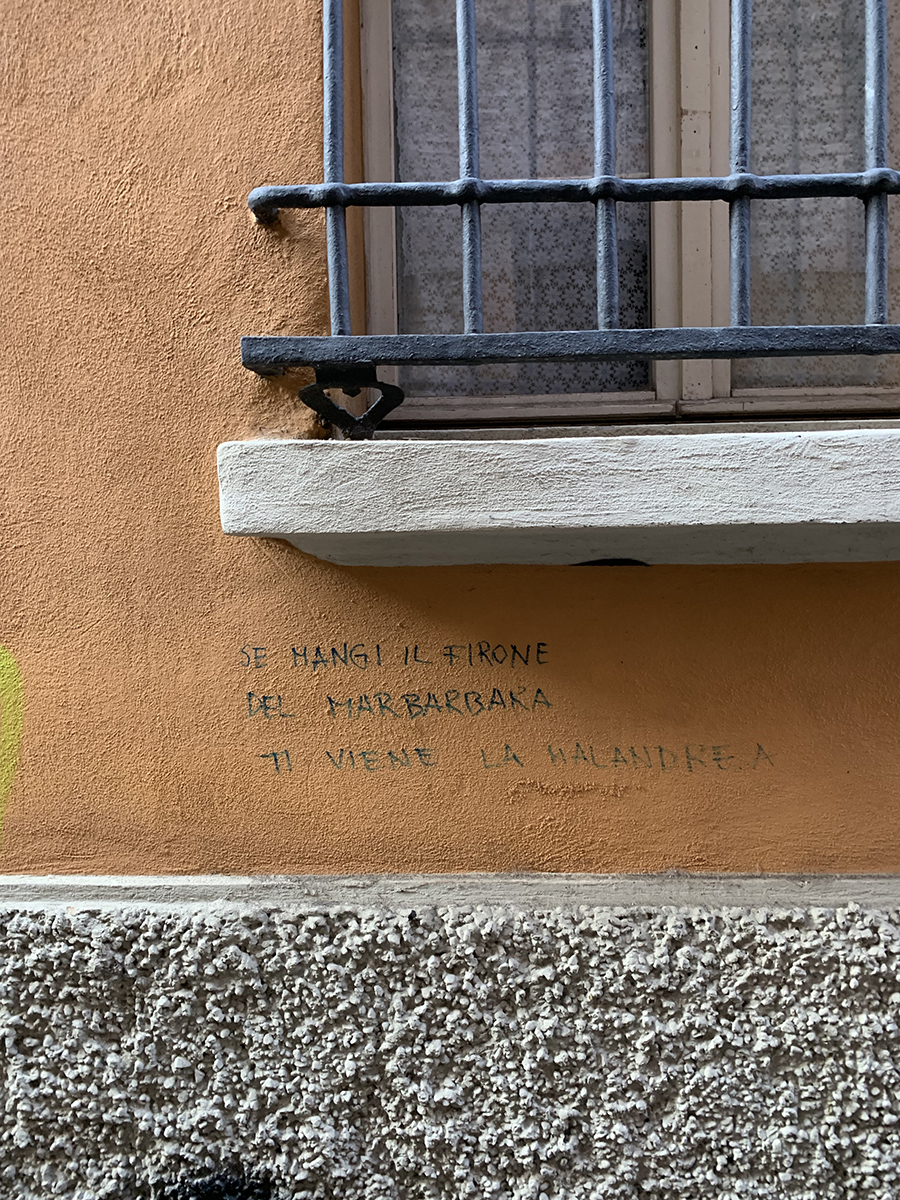 SE MANGI IL FIRONE
DEL MARBARBARA
TI VIENE LA MALANDREA